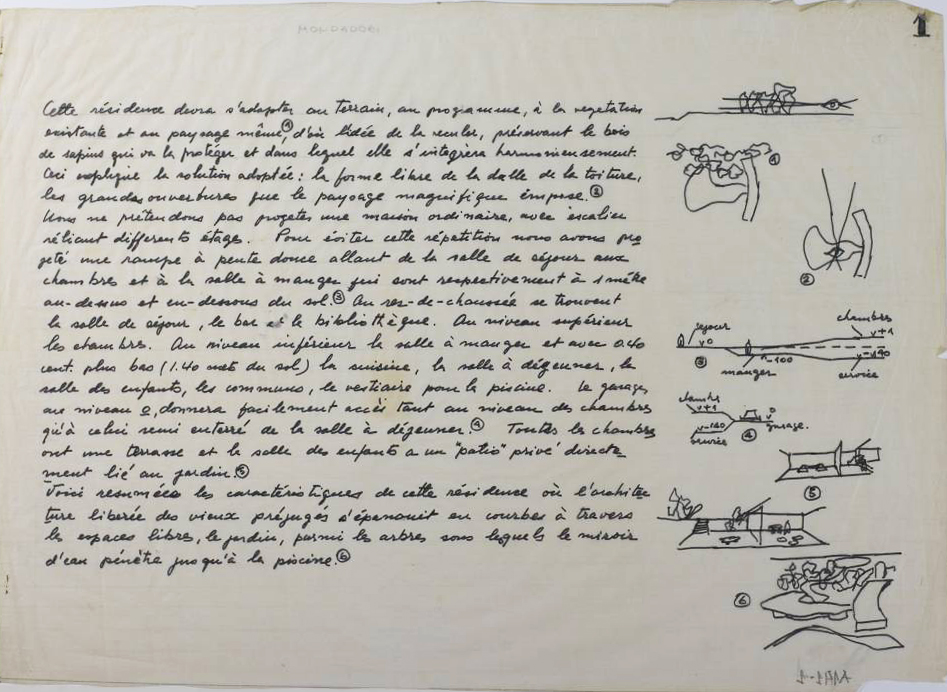 MONDADORI
1
Cette résidence devra s'adapter au terrain, au programme, à la vegetation
existante et au paysage même,① d'où l'idée de la reculer, préservant le bois
de sapins qui va la protéger et dans lequel elle s'integrèra harmonieusement.
Ceci explique la solution adoptée: la forme libre de la dalle de la toiture,
les grandes ouvertures que le paysage magnifique impose.②
Nous ne prétendons pas projeter une maison ordinaire, avec escalier
réliant differents étages. Pour éviter cette répétition nous avons pro
jeté une rampe à pente douce allant de la salle de séjour aux
chambres et à la salle à manger qui sont respectivement à 1 mètre
au-dessus et en-dessous du sol.③ Au rez-de-chaussée se trouvent
la salle de séjour, le bar et la bibliothèque. Au niveau supérieur
les chambres. Au niveau inférieur la salle à manger et avec 0.40
cent. plus bas (1.40 mts du sol) la cuisine, la salle à déjeuner, la
salle des enfants, les communs, le vestiaire pour la piscine. Le garage,
au niveau 0, donnera facilement accès tant au niveau des chambres
qu'à celui semi enterré de la salle à déjeuner.④ Toutes les chambres
ont une terrasse et la salle des enfants a un "patio" privé directe
ment lié au jardin.⑤
Voici resumées les caractéristiques de cette résidence où l'architec
ture liberée des vieux préjugés s'épanouit en courbes à travers
les espaces libres, le jardin, parmi les arbres sous lesquels le miroir
d'eau pénètre jusqu'à la piscine.⑥
①
②
séjour
v 0
chambres
v+1
③
-100
v-140
manger
service
chambre
v+1
v-140
service
v 0
garage.
④
⑤
⑥